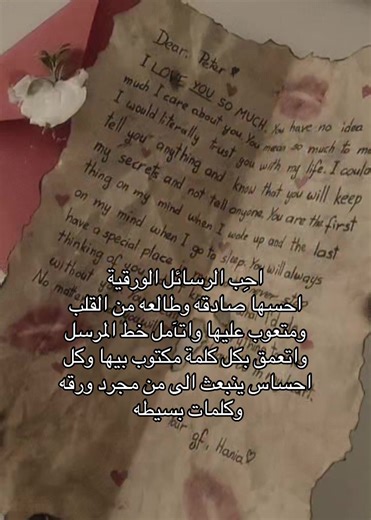 Dear, Peter
I LOVE YOU SO MUCH. You have no idea
much I care about you You mean so much to me
I would literally trust you with my life. I could
tell you anything and know that you will keep
my secrets and not tell anyone. You are the first
thing on my mind when I woke up and the last
on my mind when I go to sleep. You will always
have a special place
thinking of you
without
No matter
your gf, Hania
أحِب الرسائل الورقية
احسها صادقه وطالعه من القلب
ومتعوب عليها واتأمل خط المرسل
واتعمق بكل كلمة مكتوب بيها وكل
احساس ينبعث الى من مجرد ورقه
وكلمات بسيطه